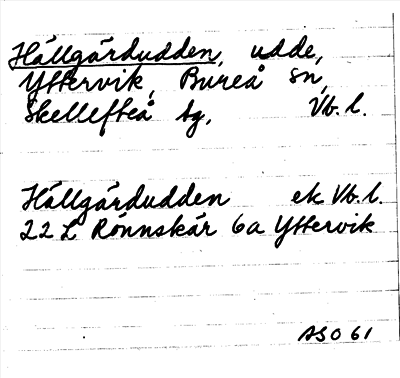 Hällgärdudden, udde,
Yttervik, Bureå sn,
Skellefteå tg, Vb. l.
Hällgärdudden ek Vb. l.
22 L Rönnskär 6a Yttervik
ASO 61